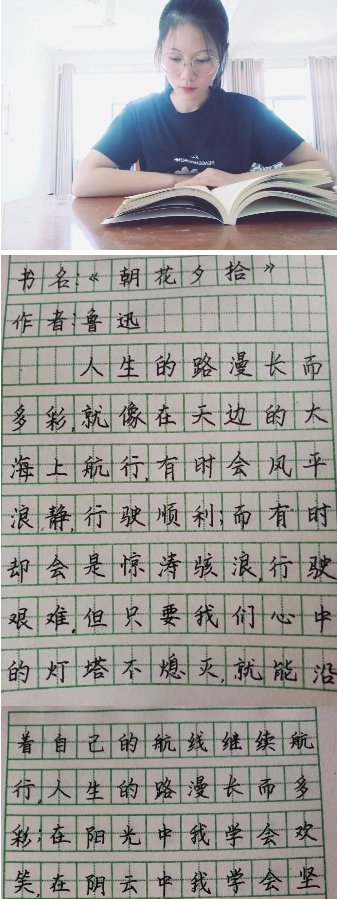 书名:《朝花夕拾》
作者:鲁迅
人生的路漫长而
多彩,就像在天边的大
海上航行,有时会风平
浪静,行驶顺利;而有时
却会是惊涛骇浪,行驶
艰难.但只要我们心中
的灯塔不熄灭,就能沿
着自己的航线继续航
行.人生的路漫长而多
彩;在阳光中我学会欢
笑,在阴云中我学会坚